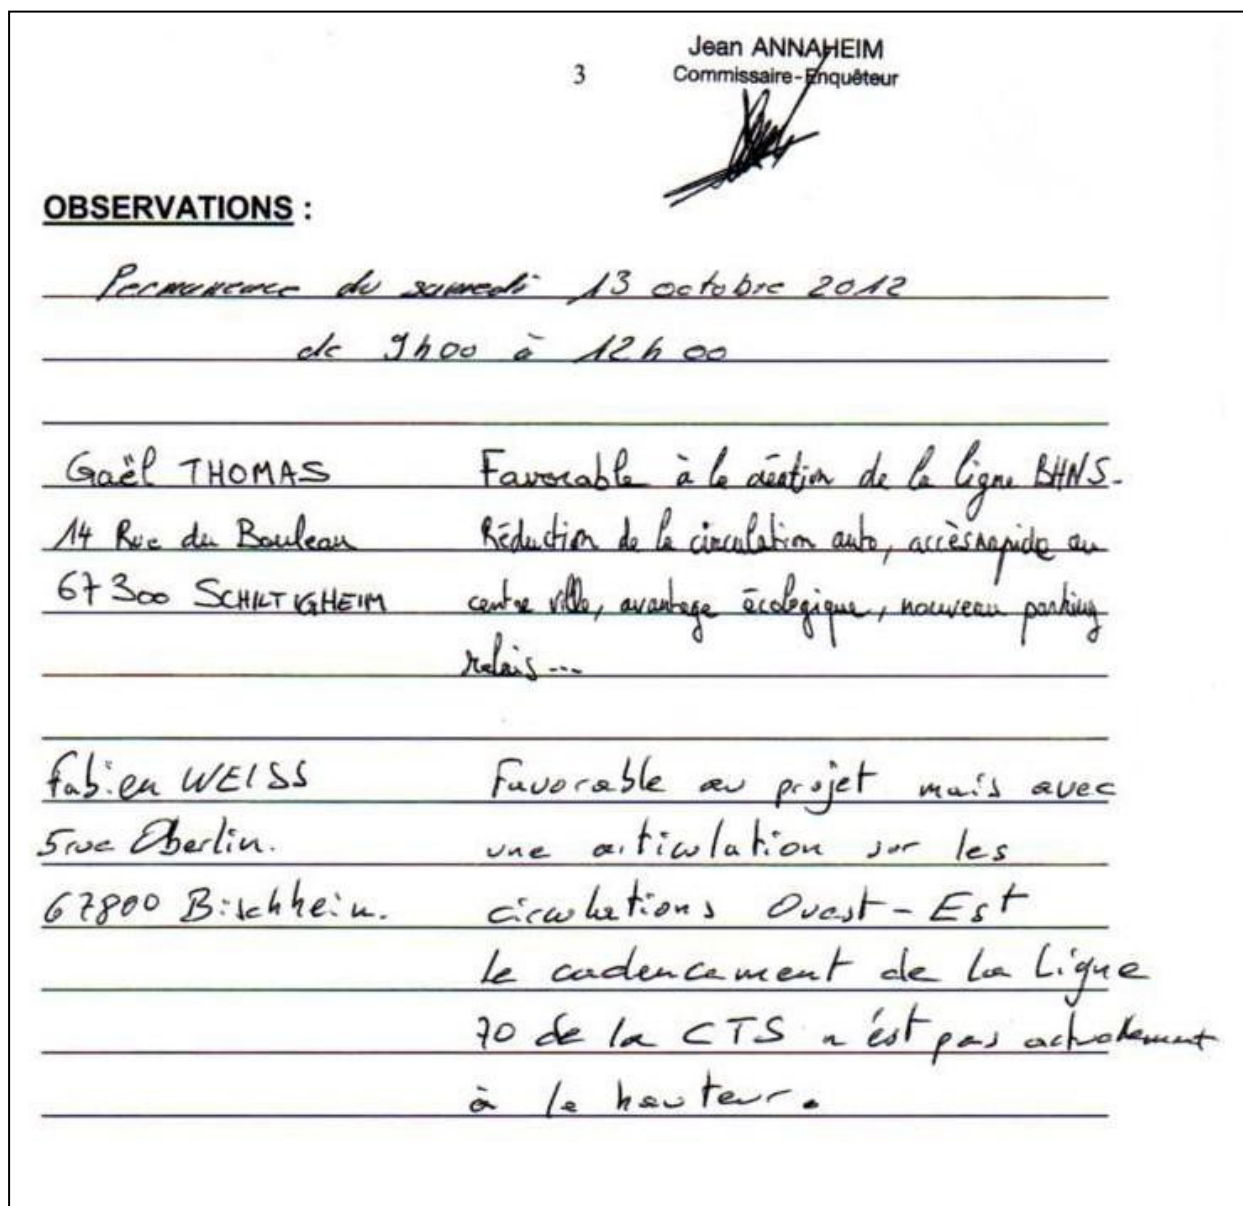 3
Jean ANNAHEIM
Commissaire-Enquêteur
OBSERVATIONS :
Permanence du samedi 13 octobre 2012
de 9h00 à 12h00
Gaël THOMAS
14 Rue du Bouleau
67300 SCHILTIGHEIM
Favorable à la création de la ligne BHNS.
Réduction de la circulation auto, accès rapide au
centre ville, avantage écologique, nouveau parking
relais...
Fabien WEISS
5 rue Oberlin.
67800 Bischheim.
Favorable au projet mais avec
une articulation sur les
circulations Ouest-Est
Le cadencement de la Ligne
70 de la CTS n'est pas actuellement
à la hauteur.